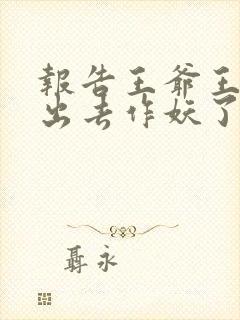 報告王爺王
出去作妖了
聶永